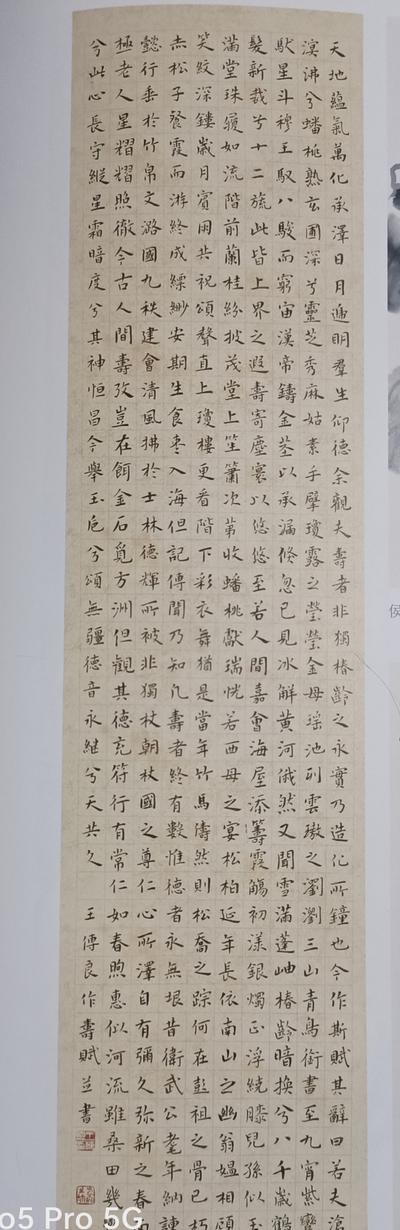 天地蘊氣萬化承澤日月遞明羣生仰德余觀夫壽者非獨椿齡之永實乃造化所鐘也今作斯賦其辭曰若夫滄
溟沸兮蟠桃熟玄圃深兮靈芝秀麻姑素手擘瓊露之瑩瑩金母瑶池列雲璈之瀏瀏三山青鳥銜書至九宵紫鸞
馱星斗穆王馭八駿而窮宙漢帝鑄金莖以承漏倏忽已見冰解黄河俄然又聞雪滿蓬岫椿齡暗換兮八千歲鶴
髮新裁兮十二旒此皆上界之遐壽寄塵寰以悠悠至若人間嘉會海屋添籌霞觴初漾銀燭正浮繞膝兒孫似玉
滿堂珠履如流階前蘭桂紛披茂堂上笙簫次第收蟠桃獻瑞恍若西母之宴松柏延年長依南山之幽翁媪相顧
笑紋深鏤歲月賓朋共祝頌聲直上瓊樓更看階下彩衣舞猶是當年竹馬儔然則松喬之踪何在彭祖之骨已朽
赤松子餐霞而游終成縹緲安期生食棗入海但記傳聞乃知凡壽者終有數惟德者永無垠昔衛武公耄年納諫
懿行垂於竹帛文潞國九秩建會清風拂於士林德輝所被非獨杖朝杖國之尊仁心所澤自有彌久弥新之春
極老人星耀耀照徹今古人間壽孜豈在餌金石覓方洲但觀其德充符行有常仁如春煦惠似河流雖桑田幾
兮此心長守縱星霜暗度兮其神恒昌今舉玉卮兮頌無疆德音永継兮天共久 王傳良作壽賦並書
侯
o5 Pro 5G